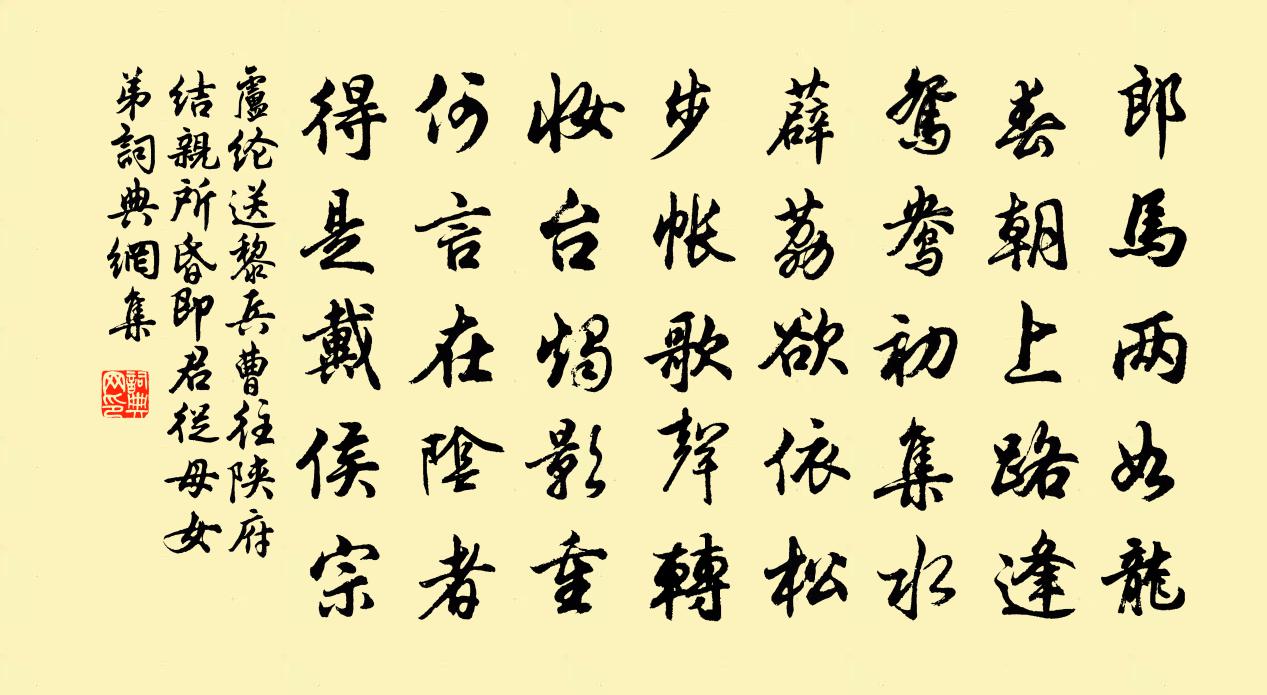 郎馬两如龍
春朝上路逢
鴛鴦初集水
薜荔欲依松
步帐歌聲轉
妆台燭影重
何言在陰者
得是戴侯宗
盧纶送黎兵曹往陕府
结親所昏即君従母女
弟詞典網集
詞典网印